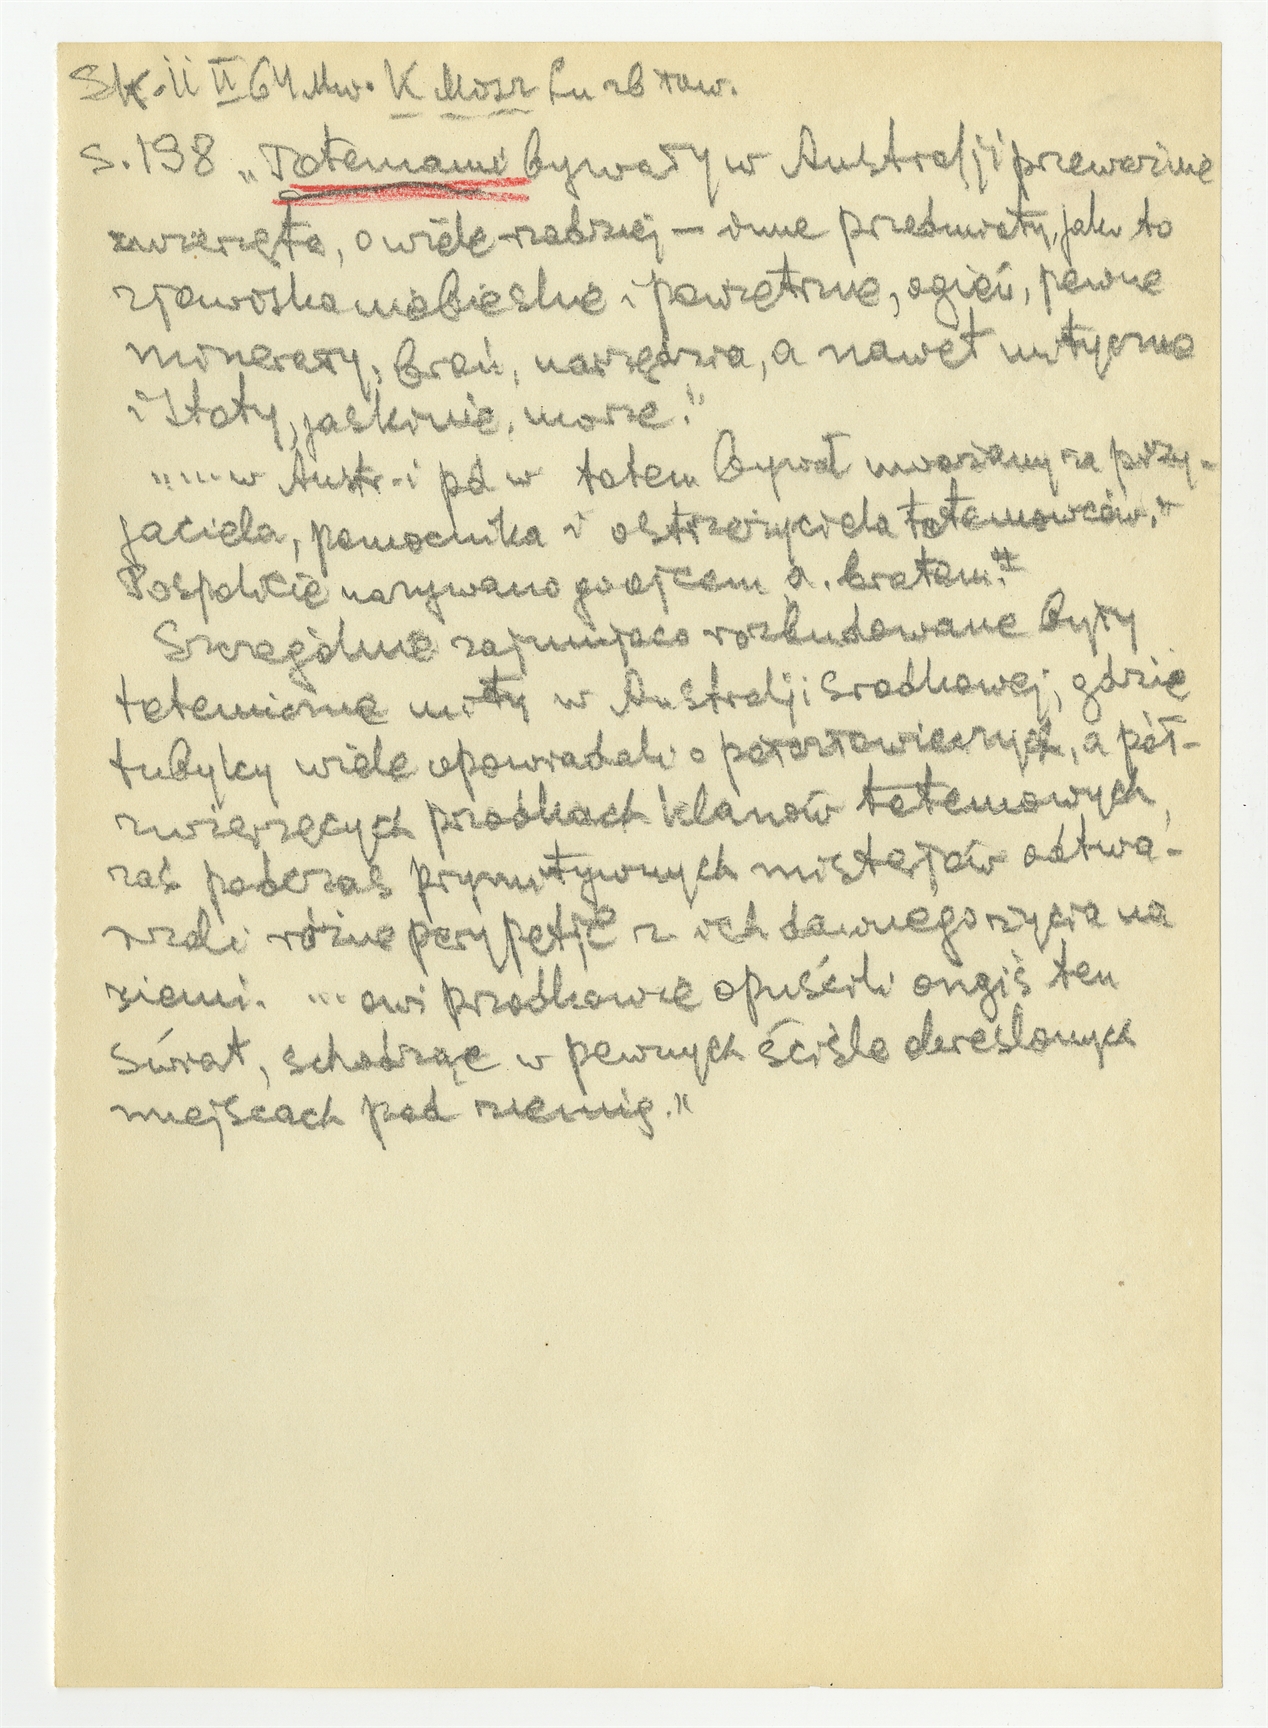 Sk. 11 II 64 Mw. K Mosz Lu zb taw.
s. 198 „Totemami bywały w Australji przeważnie
zwierzęta, o wiele rzadziej — inne przedmioty, jako to
zjawiska niebieskie i powietrzne, ogień, pewne
minerały, broń, narzędzia, a nawet mityczne
istoty, jaskinie, morze."
"... w Austr-i pd w totem bywał uważany za przy-
jaciela, pomocnika i ostrzeżyciela totemowców.
Pospolicie nazywano go ojcem a. bratem."
Szczególnie zajmująco rozbudowane były
totemiczne mity w Australji środkowej, gdzie
tubylcy wiele opowiadali o półczłowieczych, a pół-
zwierzęcych przodkach klanów totemowych,
zaś podczas prymitywnych misterjów odtwa-
rzali różne perypetje z ich dawnego życia na
ziemi. ... owi przodkowie opuścili ongiś ten
świat, schodząc w pewnych ściśle określonych
miejscach pod ziemię."